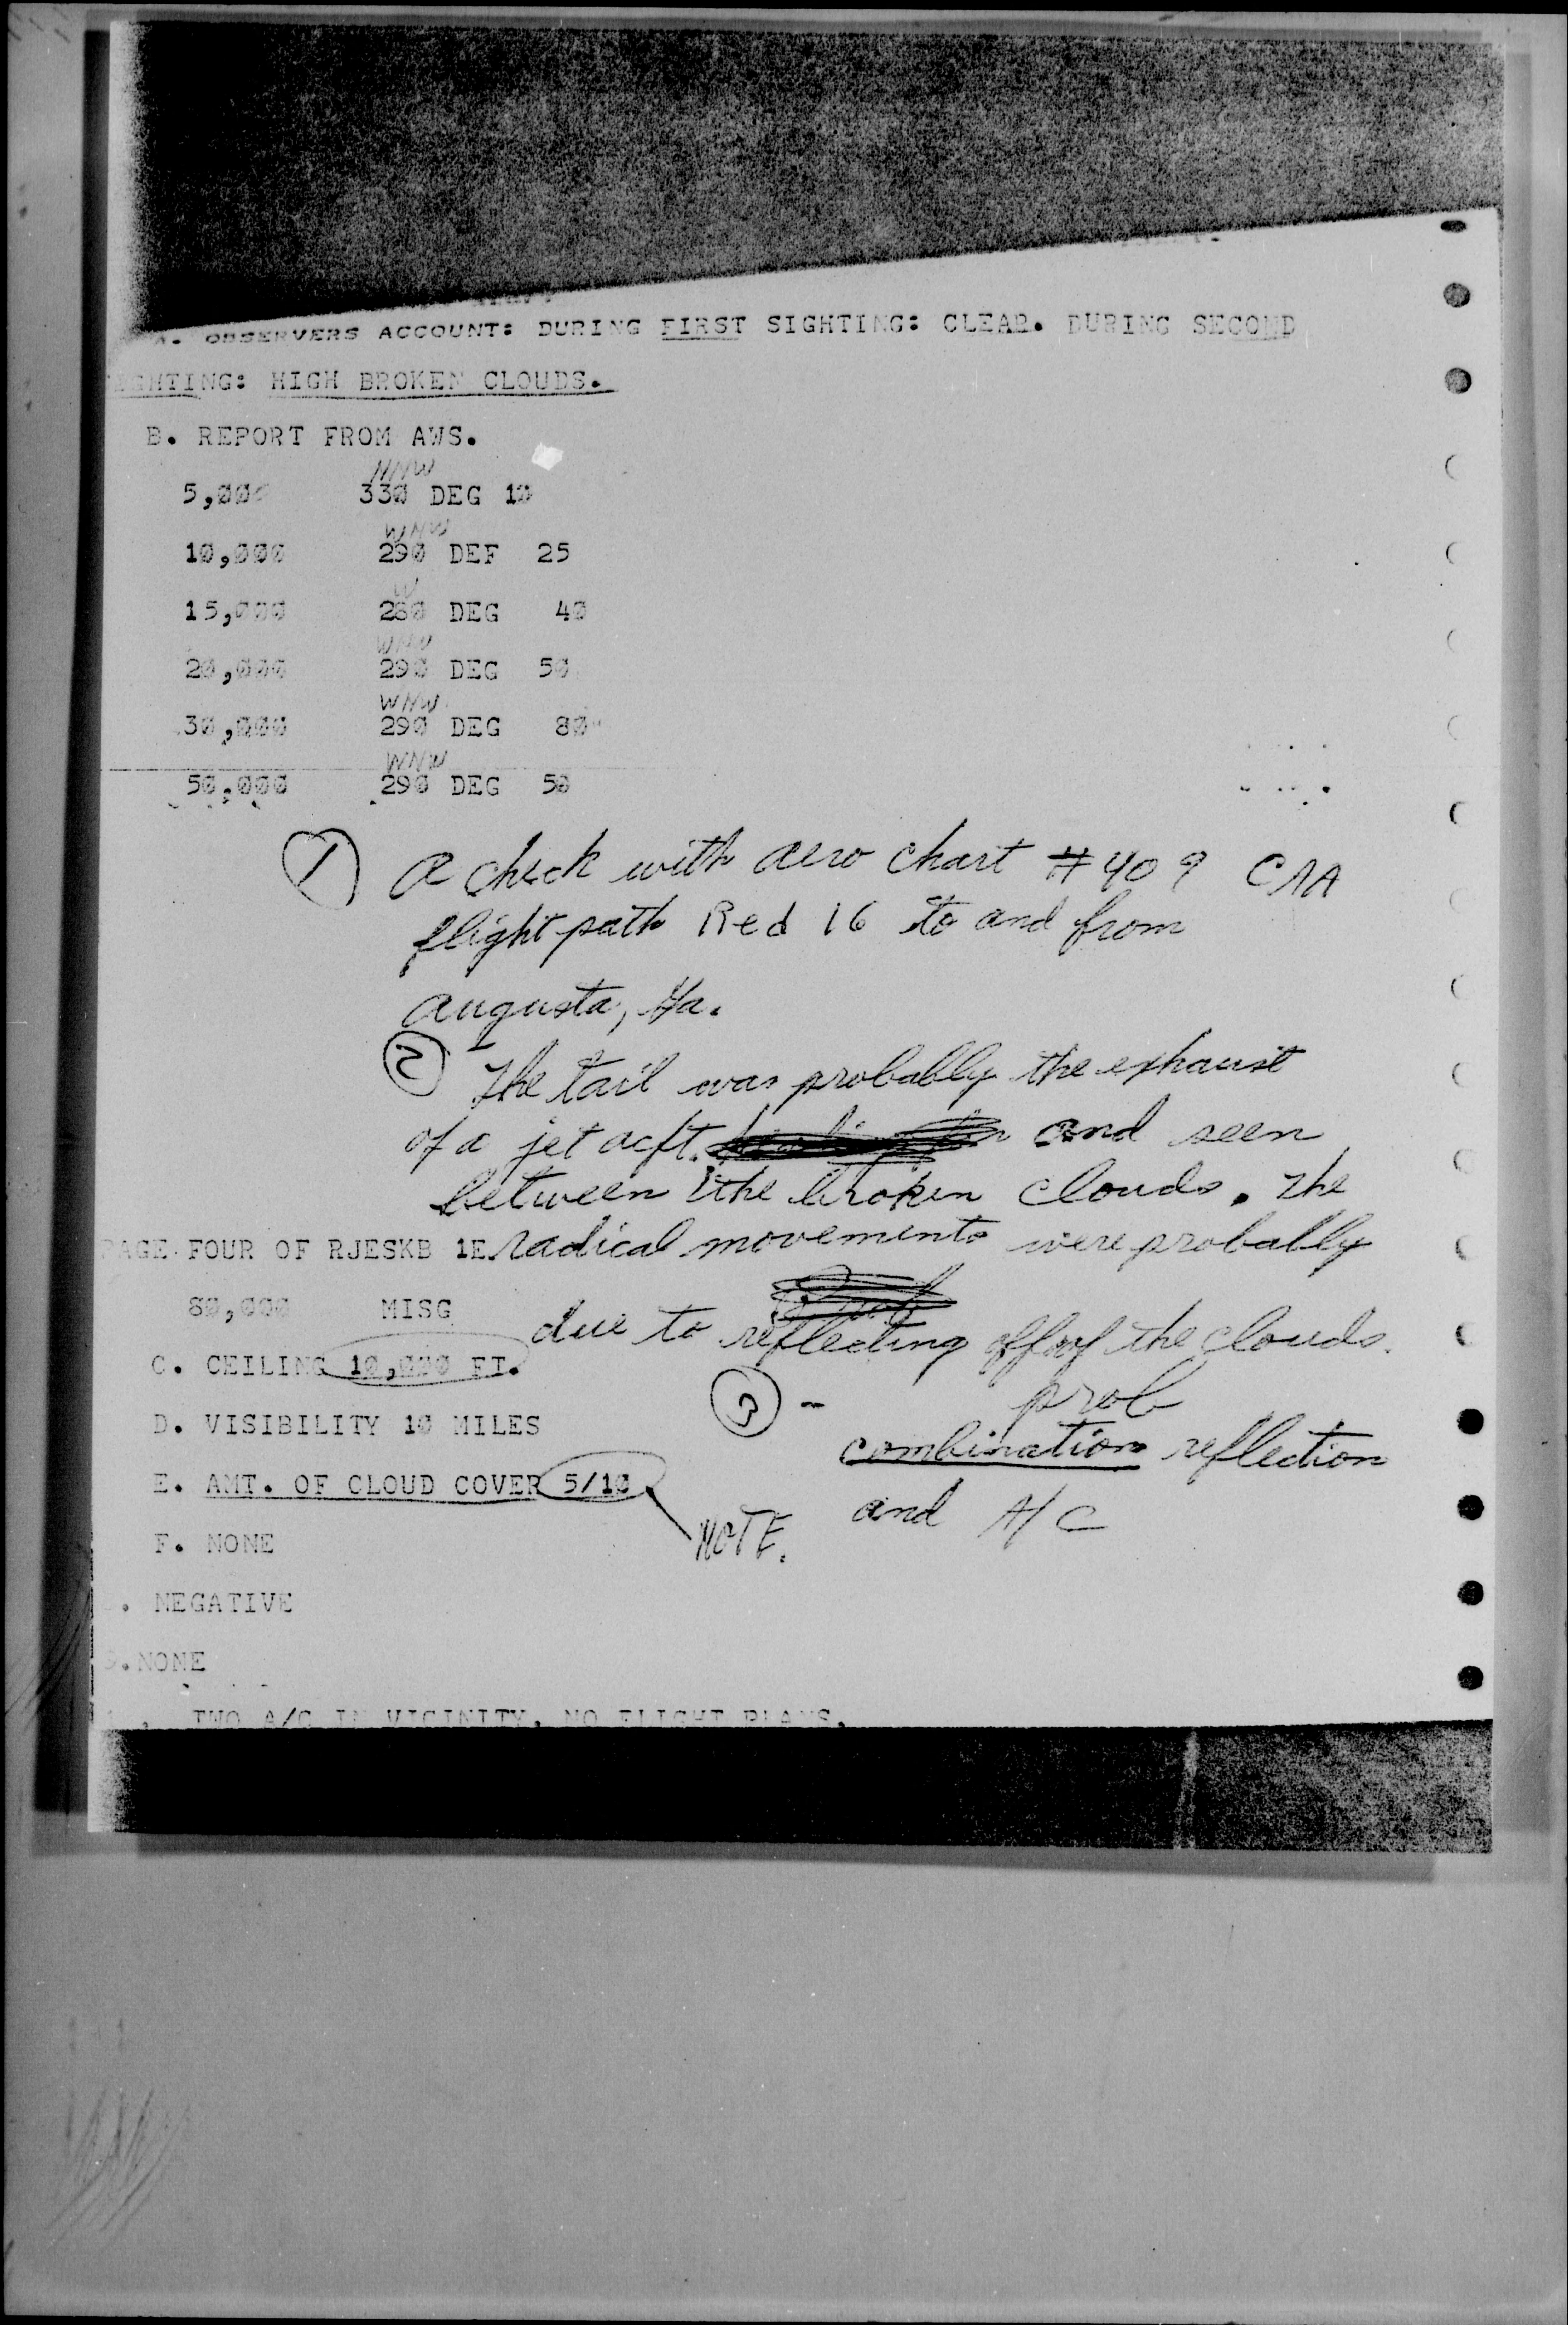 A. OBSERVERS ACCOUNT: DURING FIRST SIGHTING: CLEAR. DURING SECOND
SIGHTING: HIGH BROKEN CLOUDS.
B. REPORT FROM AWS.
NNW
5,000 330 DEG 10
WNW
10,000 290 DEF 25
W
15,000 280 DEG 40
WNW
20,000 290 DEG 50
WNW
30,000 290 DEG 80
WNW
50,000 290 DEG 50
1 A check with aero chart #409 CAA
flight path Red 16 to and from
Augusta, Ga.
2 The tail was probably the exhaust
of a jet acft. and seen
between the broken clouds. The
PAGE FOUR OF RJESKB 1E radical movements were probably
80,000 MISG
due to reflecting off of the clouds.
C. CEILING 10,000 FT.
3 - prob
D. VISIBILITY 10 MILES
combination reflection
E. AMT. OF CLOUD COVER 5/10
and A/C
NOTE.
F. NONE
. NEGATIVE
.NONE
. TWO A/C IN VICINITY, NO FLIGHT PLANS.